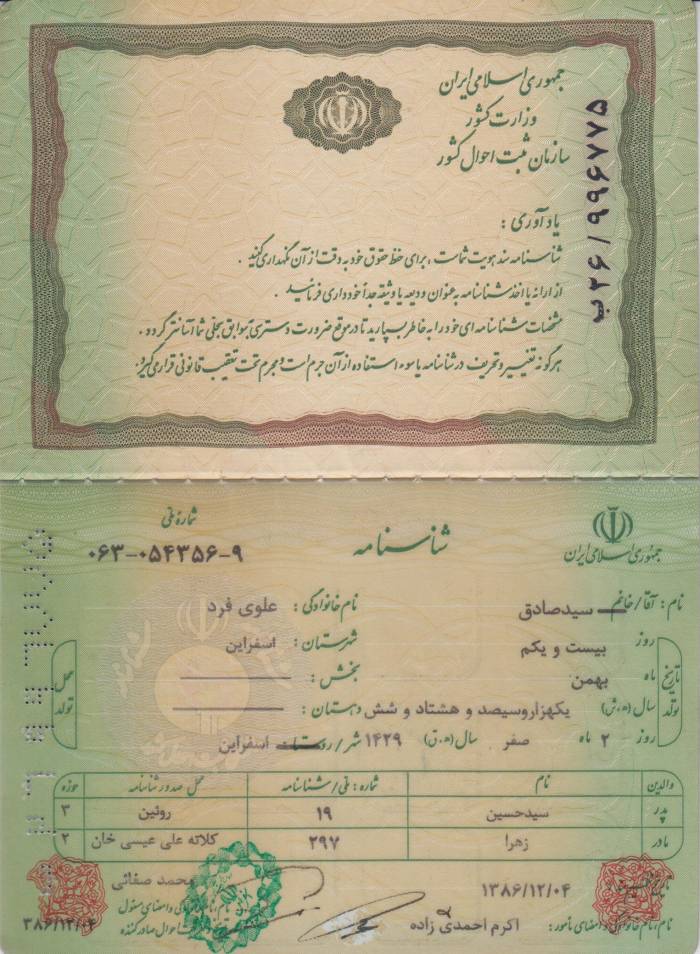 جمهوری اسلامی ایران
وزارت کشور
سازمان ثبت احوال کشور
ب۲۶/۹۹۶۷۷۵
یادآوری :
شناسنامه سند هویت شماست ، برای حفظ حقوق خود به دقت از آن نگهداری کنید .
از ارائه یا اخذ شناسنامه به عنوان ودیعه یا وثیقه جداً خودداری فرمائید .
مشخصات شناسنامه ای خود را به خاطر بسپارید تا در موقع ضرورت دسترسی به سوابق سجلی شما آسانتر گردد .
هرگونه تغییر و تحریف در شناسنامه یا سوء استفاده از آن جرم است و مجرم تحت تعقیب قانونی قرار می گیرد .
جمهوری اسلامی ایران
شناسنامه
شماره ملی
۰۶۳-۰۵۴۳۵۶-۹
نام : آقا / خانم سیدصادق نام خانوادگی : علوی فرد
تاریخ تولد
روز بیست و یکم شهرستان : اسفراین
ماه بهمن بخش :
سال (ه.ش) یکهزاروسیصد و هشتاد و شش دهستان :
روز ۲ ماه صفر سال (ه.ق) ۱۴۲۹ شهر / روستا : اسفراین
محل تولد
والدین نام شماره : ملی / شناسنامه محل صدور شناسنامه حوزه
پدر سیدحسین ۱۹ روئین ۳
مادر زهرا ۲۹۷ کلاته علی عیسی خان ۲
۱۳۸۶/۱۲/۰۴ محمد صفائی
نام ، نام خانوادگی و امضای مأمور : اکرم احمدی زاده
نام ، نام خانوادگی و امضای مسئول
۳۸۶/۱۲/۰۴